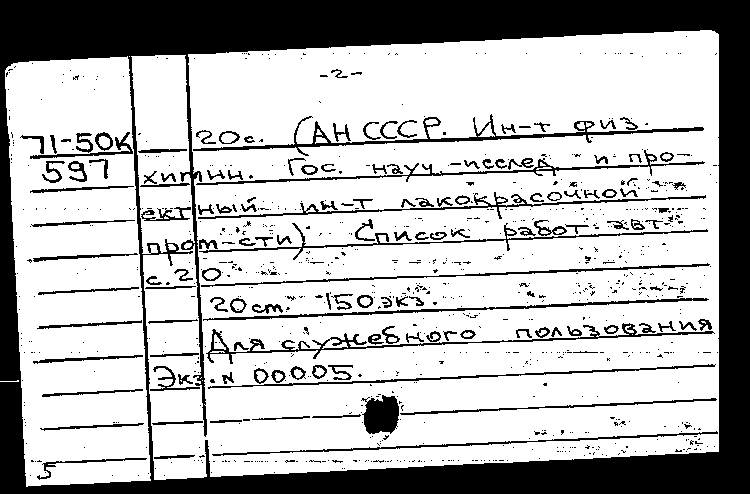 -2-
71-50к 20с. (АН СССР. Ин-т физ.
597 химии. Гос. науч.-исслед. и про-
ектный ин-т лакокрасочной
пром-сти). Список работ авт.
с.20.
20 см. 150 экз.
Для служебного пользования
Экз. N 00005.
5